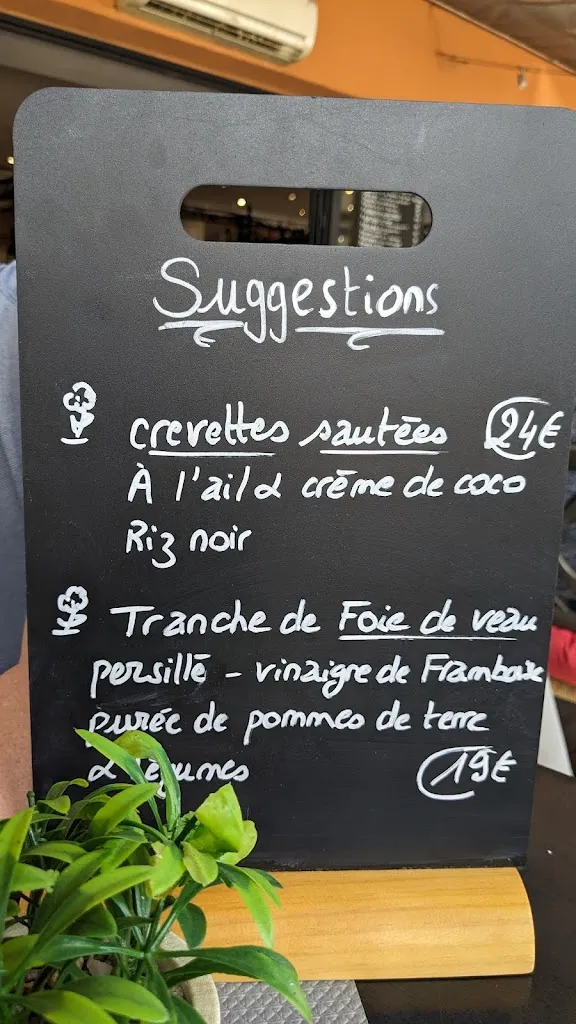 Suggestions
crevettes sautées 24€
À l'ail & crème de coco
Riz noir
Tranche de Foie de veau
persillé - vinaigre de Framboise
purée de pommes de terre
& légumes 19€